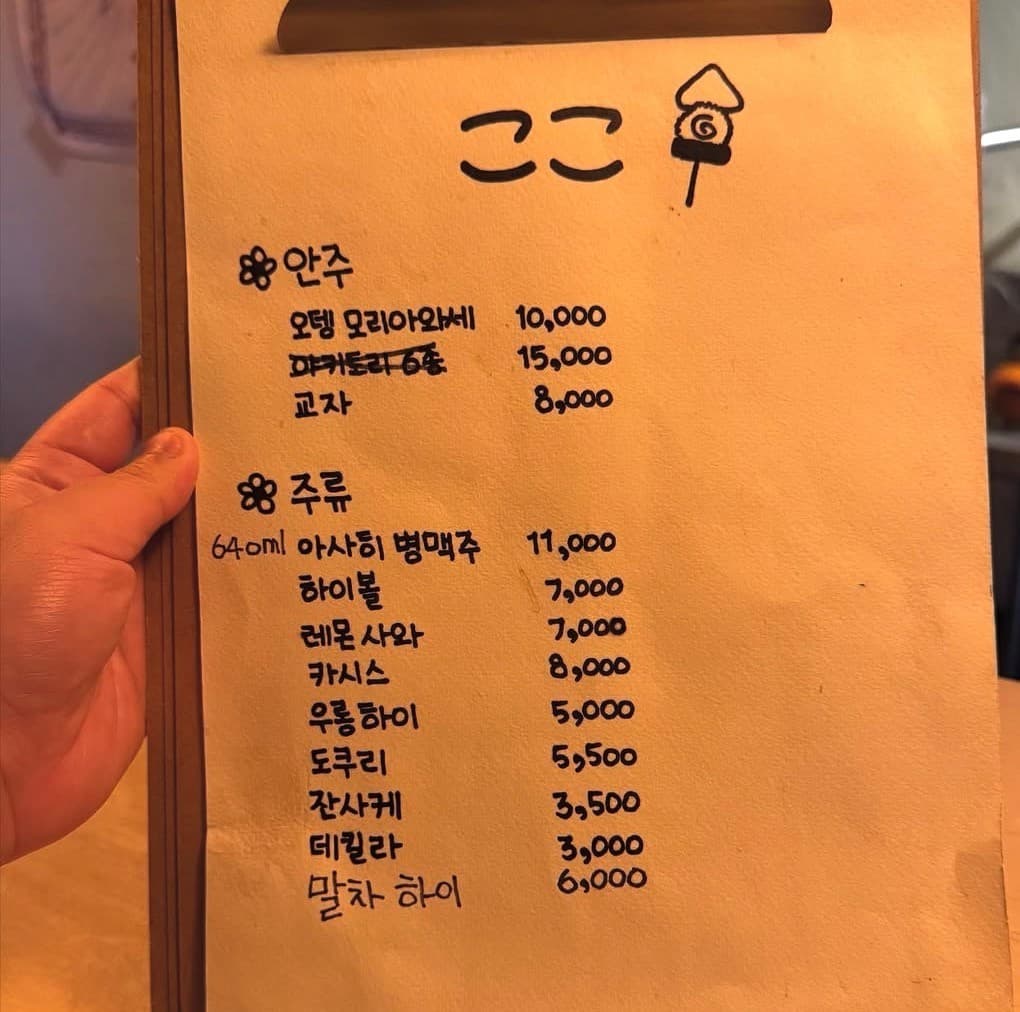 ここ
안주
오뎅 모리아와세 10,000
야키토리 6종 15,000
교자 8,000
주류
640ml 아사히 병맥주 11,000
하이볼 7,000
레몬 사와 7,000
카시스 8,000
우롱하이 5,000
도쿠리 5,500
잔사케 3,500
데킬라 3,000
말차 하이 6,000